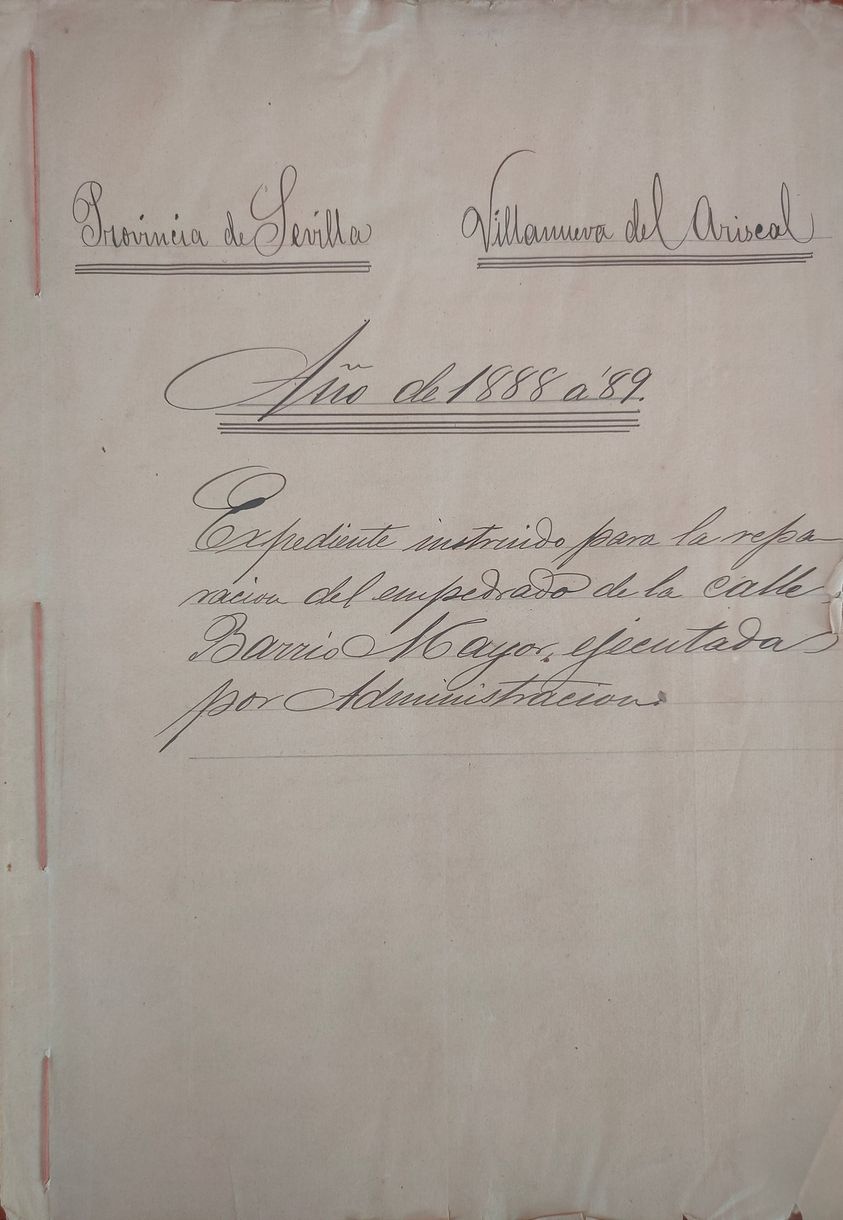 Provincia de Sevilla Villanueva del Ariscal
Año de 1888 a '89.
Expediente instruido para la repa-
racion del empedrado de la calle
Barrio Mayor, ejecutada
por Administracion.